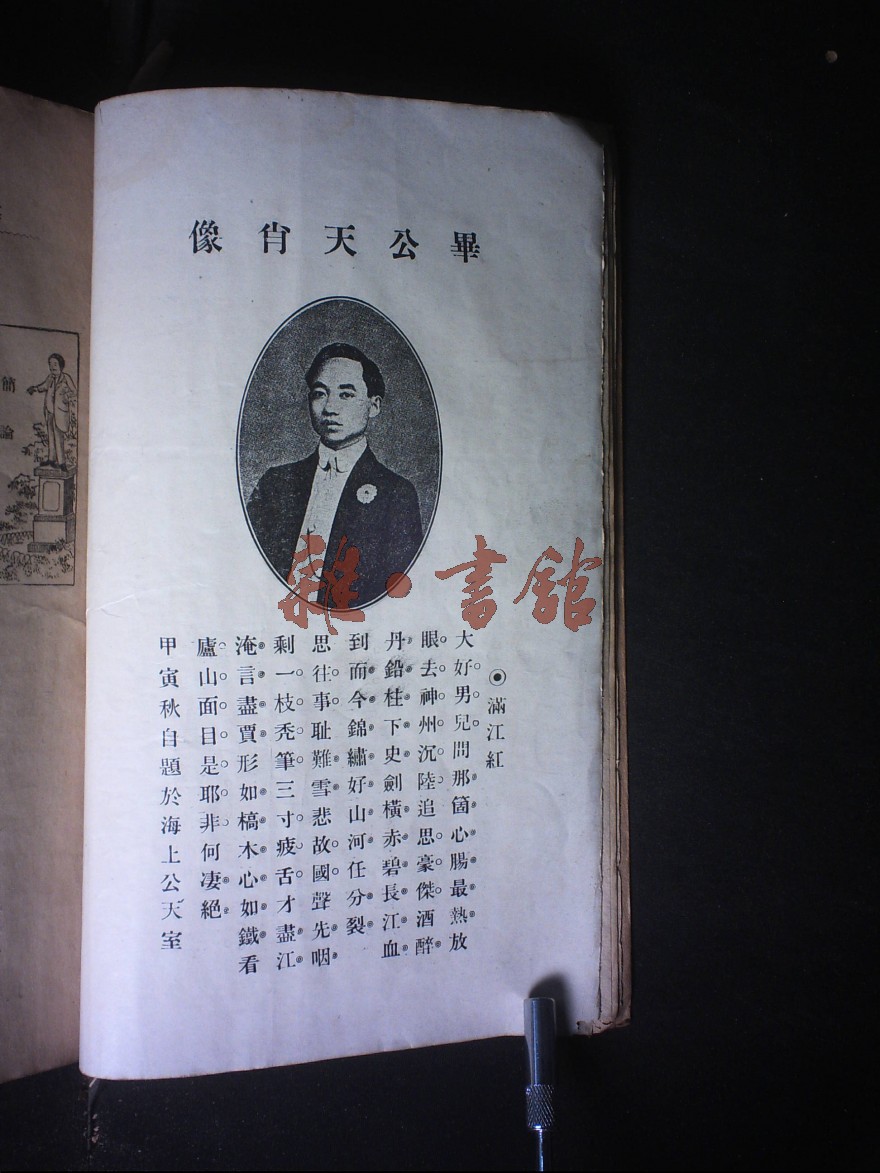 畢公天肖像
⦿滿江紅
大好。男。兒。問那。箇心腸最熱放
眼。去。神州沉陸。追思。豪。傑。酒醉
丹鉛桂下史劍橫赤碧長江血
到而今錦繡好山河任分裂
思往事恥難雪悲故國聲先咽
剩一枝。禿。筆三寸。疲。舌才盡江
淹言盡賈形如槁木心如鐵看
廬。山。面。目。是。耶。非。何凄絕
甲寅秋自題於海上公天室
簡
論
雜·書館